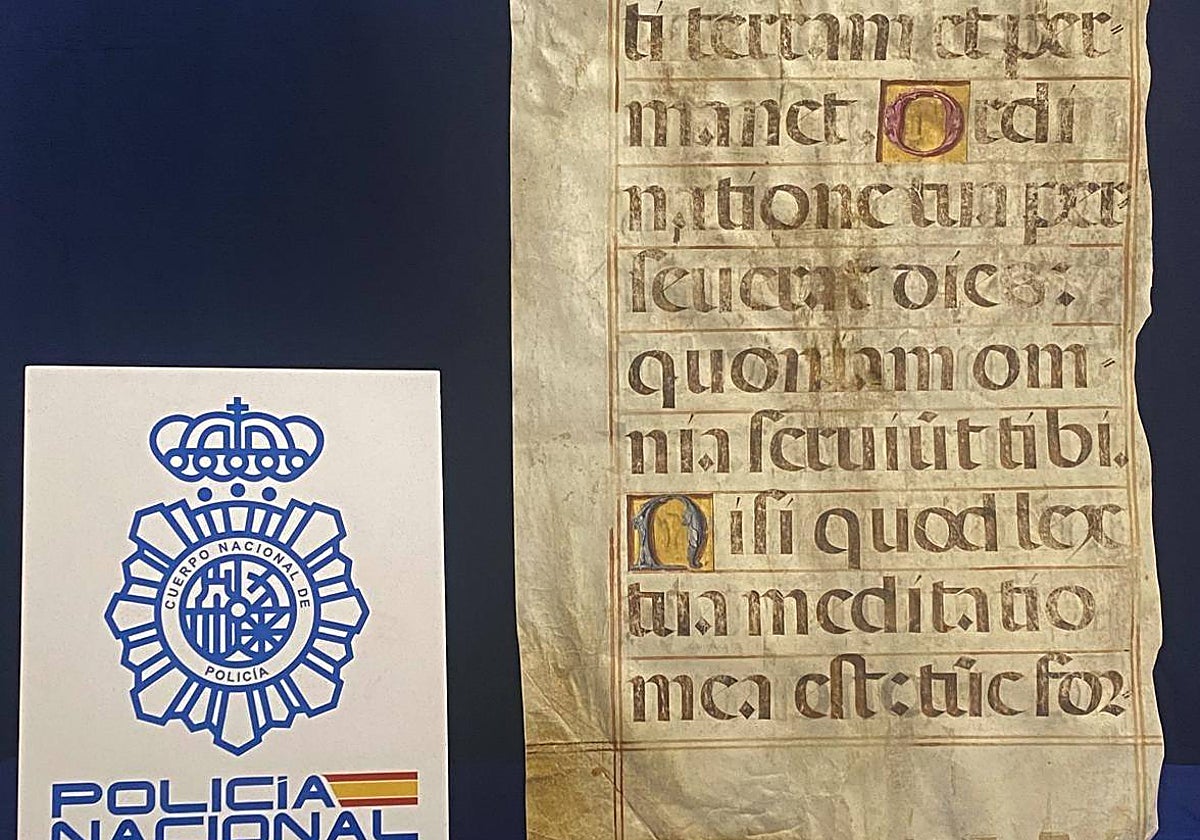 CUERPO NACIONAL DE
POLICÍA
POLICÍA
NACIONAL
ti terram et per⸗
manet. Ordi
natione tua per⸗
seuerat dies:
quoniam om⸗
nia seruiũt tibi.
Nisi quod lex
tua meditatio
mea est: tũc for⸗